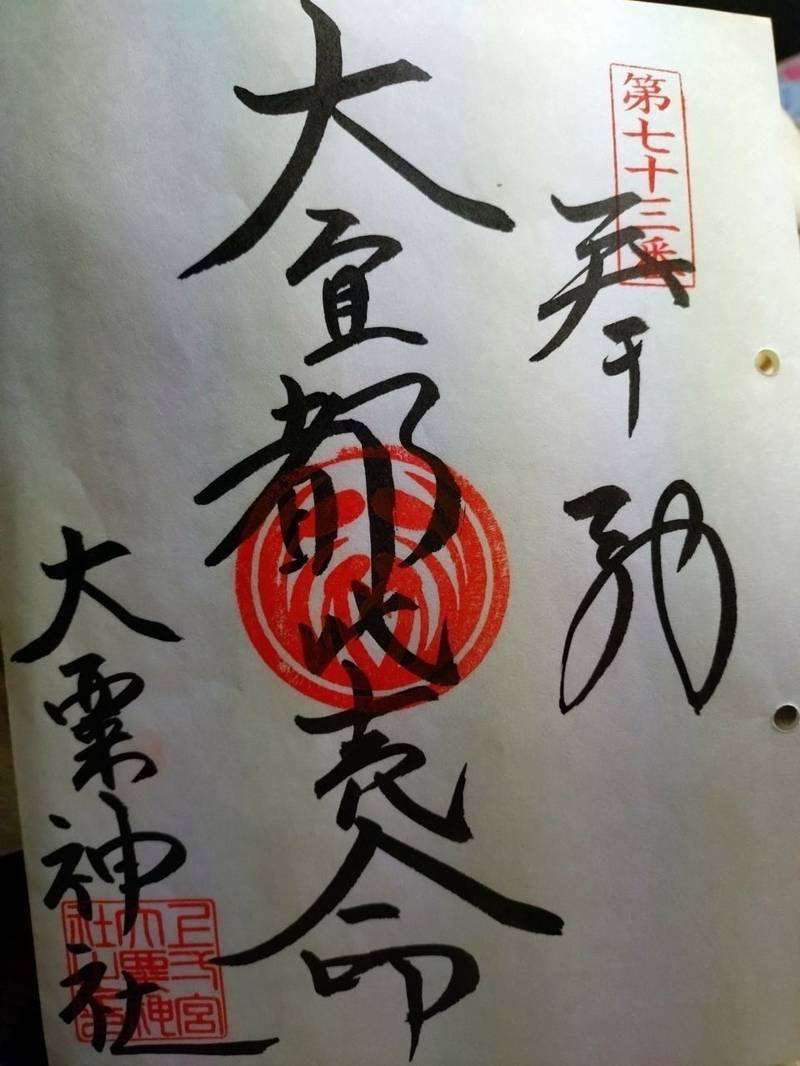 第七十三番
奉納
大宜都比売命
大粟神社